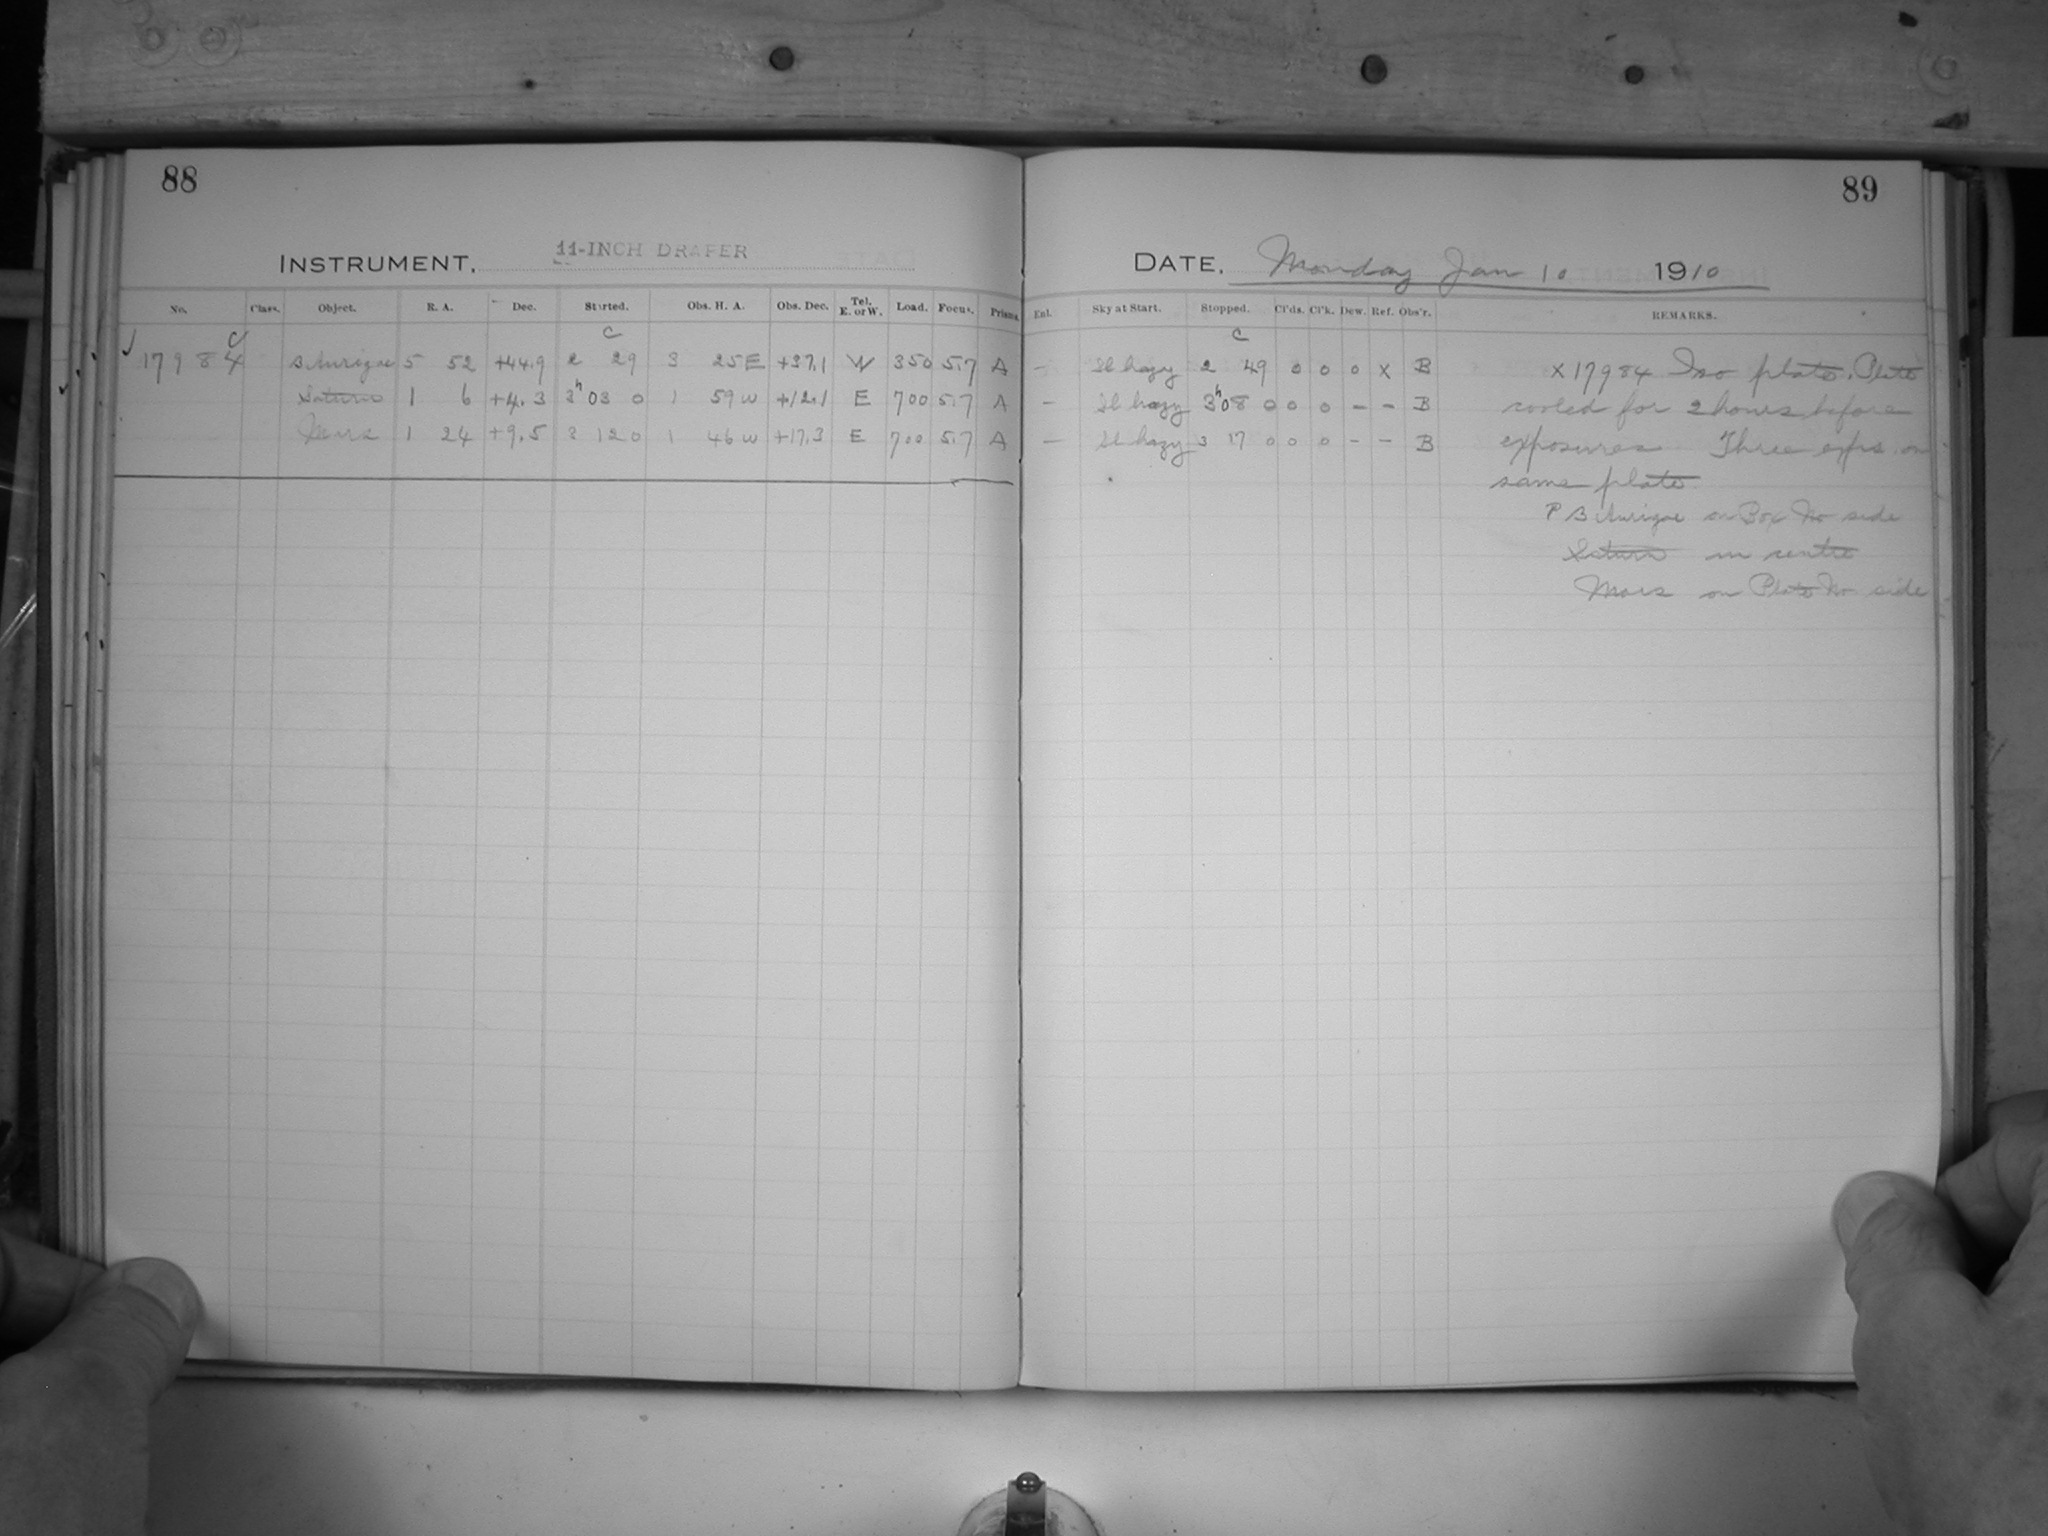 88
89
INSTRUMENT. 11-INCH DRAPER
DATE. Monday Jan 10 1910
No. Class. Object. R. A. Dec. Started. Obs. H. A. Obs. Dec. Tel. E. or W. Load. Focus. Prisms. Enl. Sky at Start. Stopped. Cl'ds. Cl'k. Dew. Ref. Obs'r. REMARKS.
C C C
17984 B Aurigae 5 52 +44.9 2 29 3 25 E +37.1 W 350 5.7 A – Sl hazy 2 49 0 0 0 X B X 17984 Iso plate. Plate
Saturn 1 6 +4.3 3h 03 0 1 59 W +12.1 E 700 5.7 A – Sl hazy 3h 08 0 0 0 0 – – B cooled for 2 hours before
Mars 1 24 +9.5 3 12 0 1 46 W +17.3 E 700 5.7 A – Sl hazy 3 17 0 0 0 0 – – B exposures Three exps. on
same plate
B Aurigae on Box No side
Saturn in centre
Mars on Plate No side